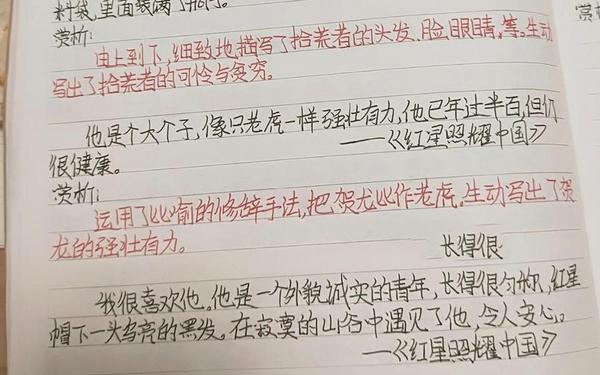 料袋,里面装满了
赏析:
由上到下,细致地描写了拾荒者的头发、脸、眼睛,等。生动
写出了拾荒者的可怜与贫穷。
他是个大个子,像只老虎一样强壮有力,他已年过半百,但仍
很健康。
——《红星照耀中国》
赏析:
运用了比喻的修辞手法,把贺龙比作老虎,生动写出了贺
龙的强壮有力。
长得很
我很喜欢他。他是一个外貌诚实的青年,长得很匀称,红星
帽下一头乌亮的黑发。在寂寞的山谷中遇见了他,令人安心。
——《红星照耀中国》
赏